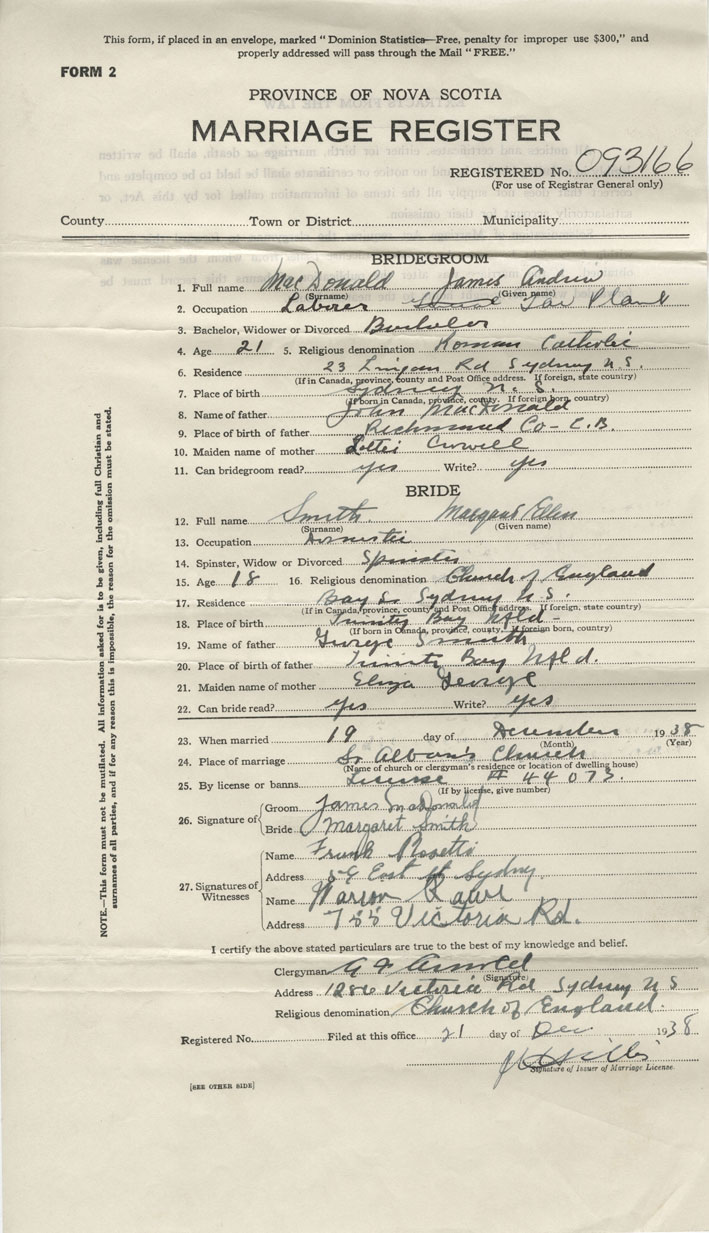 This form, if placed in an envelope, marked "Dominion Statistics—Free, penalty for improper use $300," and
properly addressed will pass through the Mail "FREE."
FORM 2
PROVINCE OF NOVA SCOTIA
MARRIAGE REGISTER
REGISTERED No. 093166
(For use of Registrar General only)
County Town or District Municipality
BRIDEGROOM
1. Full name MacDonald James Andrew
(Surname) (Given name)
2. Occupation Laborer Tar Plant
3. Bachelor, Widower or Divorced Bachelor
4. Age 21 5. Religious denomination Roman Catholic
6. Residence 23 Lingan Rd Sydney N.S.
(If in Canada, province, county and Post Office address. If foreign, state country)
7. Place of birth Sydney N.S.
(If born in Canada, province, county. If foreign born, country)
8. Name of father John MacDonald
9. Place of birth of father Richmond Co - C.B.
10. Maiden name of mother Lottie Crowell
11. Can bridegroom read? yes Write? yes
BRIDE
12. Full name Smith Margaret Ellen
(Surname) (Given name)
13. Occupation Domestic
14. Spinster, Widow or Divorced Spinster
15. Age 18 16. Religious denomination Church of England
17. Residence Bay St Sydney N.S.
(If in Canada, province, county and Post Office address. If foreign, state country)
18. Place of birth Trinity Bay Nfld -
(If born in Canada, province, county. If foreign born, country)
19. Name of father George Smith
20. Place of birth of father Trinity Bay Nfld.
21. Maiden name of mother Eliza George
22. Can bride read? yes Write? yes
23. When married 19 day of December 1938
(Month) (Year)
24. Place of marriage St Alban's Church
(Name of church or clergyman's residence or location of dwelling house)
25. By license or banns License # 44073.
(If by license, give number)
26. Signature of Groom James MacDonald
Bride Margaret Smith
27. Signatures of Witnesses
Name Frank
Address East St Sydney.
Name
Address 755 Victoria Rd.
I certify the above stated particulars are true to the best of my knowledge and belief.
Clergyman A F Arnold
(Signature)
Address Victoria Rd Sydney N S
Religious denomination Church of England.
Registered No. Filed at this office 21 day of Dec 1938
Signature of Issuer of Marriage License.
[SEE OTHER SIDE]
NOTE.—This form must not be mutilated. All information asked for is to be given, including full Christian and
surnames of all parties, and if for any reason this is impossible, the reason for the omission must be stated.